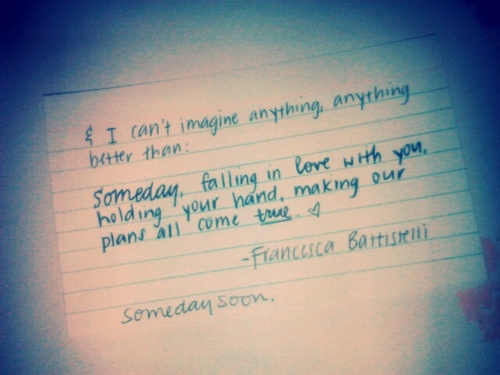 & I can't imagine anything, anything
better than:
Someday, falling in love with you,
holding your hand, making our
plans all come true. ♡
-Francesca Battistelli
someday soon.